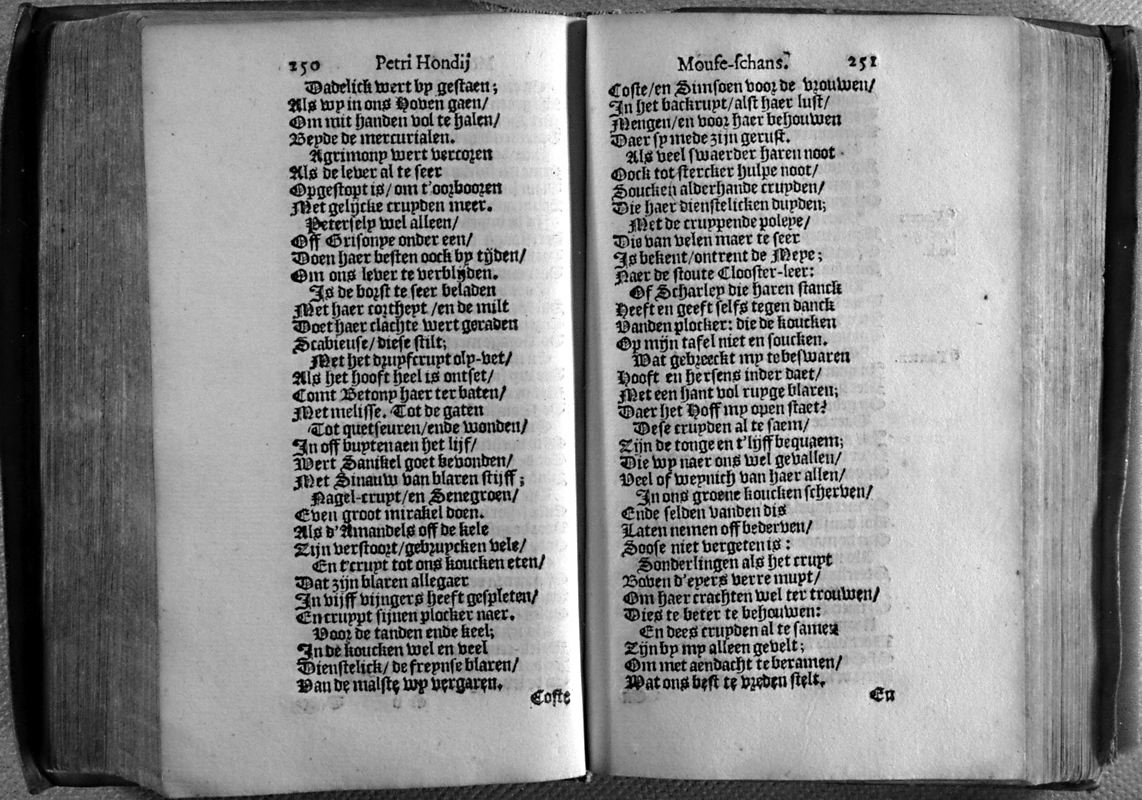 250 Petri Hondij
Dadelick wert by gestaen;
Als wy in ons Hoven gaen/
Om mit handen vol te halen/
Beyde de mercurialen.
Agrimony wert vercoren
Als de lever al te seer
Opgestopt is/ om t'oorbooren
Met gelijcke cruyden meer.
Petersely wel alleen/
Off Grisonye onder een/
Doen haer besten oock by tijden/
Om ons lever te verblijden.
Is de borst te seer beladen
Met haer cortheyt/en de milt
Doet haer clachte wert geraden
Scabieuse/diese stilt;
Met het druyfcruyt oly-vet/
Als het hooft heel is ontset/
Comt Betony haer ter baten/
Met melisse. Tot de gaten
Tot quetseuren/ende wonden/
In off buytenaen het lijf/
Wert Sanikel goet bevonden/
Met Sinauw van blaren stijff;
Nagel-cruyt/en Senegroen/
Even groot mirakel doen.
Als d'Amandels off de kele
Zijn verstoort/gebruycken vele/
En t'cruyt tot ons koucken eten/
Dat zijn blaren allegaer
In vijff vijngers heeft gespleten/
En cruypt sijnen plocker naer.
Voor de tanden ende keel;
In de koucken wel en veel
Dienstelick/ de freynse blaren/
Van de malste wy vergaren.
Coste
Mouse-schans. 251
Coste/en Simsoen voor de vrouwen/
In het backruyt/alst haer lust/
Mengen/en voor haer behouwen
Daer sy mede zijn gerust.
Als veel swaerder haren noot
Oock tot stercker hulpe noot/
Soucken alderhande cruyden/
Die haer dienstelicken duyden;
Met de cruypende poleye/
Die van velen maer te seer
Is bekent/ontrent de Meye;
Naer de stoute Clooster-leer:
Of Scharley die haren stanck
Heeft en geeft selfs tegen danck
Vanden plocker: die de koucken
Op mijn tafel niet en soucken.
Wat gebreeckt my te beswaren
Hooft en hersens inder daet/
Met een hant vol ruyge blaren;
Daer het Hoff my open staet?
Dese cruyden al te saem/
Zijn de tonge en t'lijff bequaem;
Die wy naer ons wel gevallen/
Veel of weynich van haer allen/
In ons groene koucken scherven/
Ende selden vanden dis
Laten nemen off bederven/
Soose niet vergeten is:
Sonderlingen als het cruyt
Boven d'eyers verre muyt/
Om haer crachten wel ter trouwen/
Dies te beter te behouwen:
En dees cruyden al te samen
Zijn by my alleen gevelt;
Om met aendacht te beramen/
Wat ons best te vreden stelt.
En